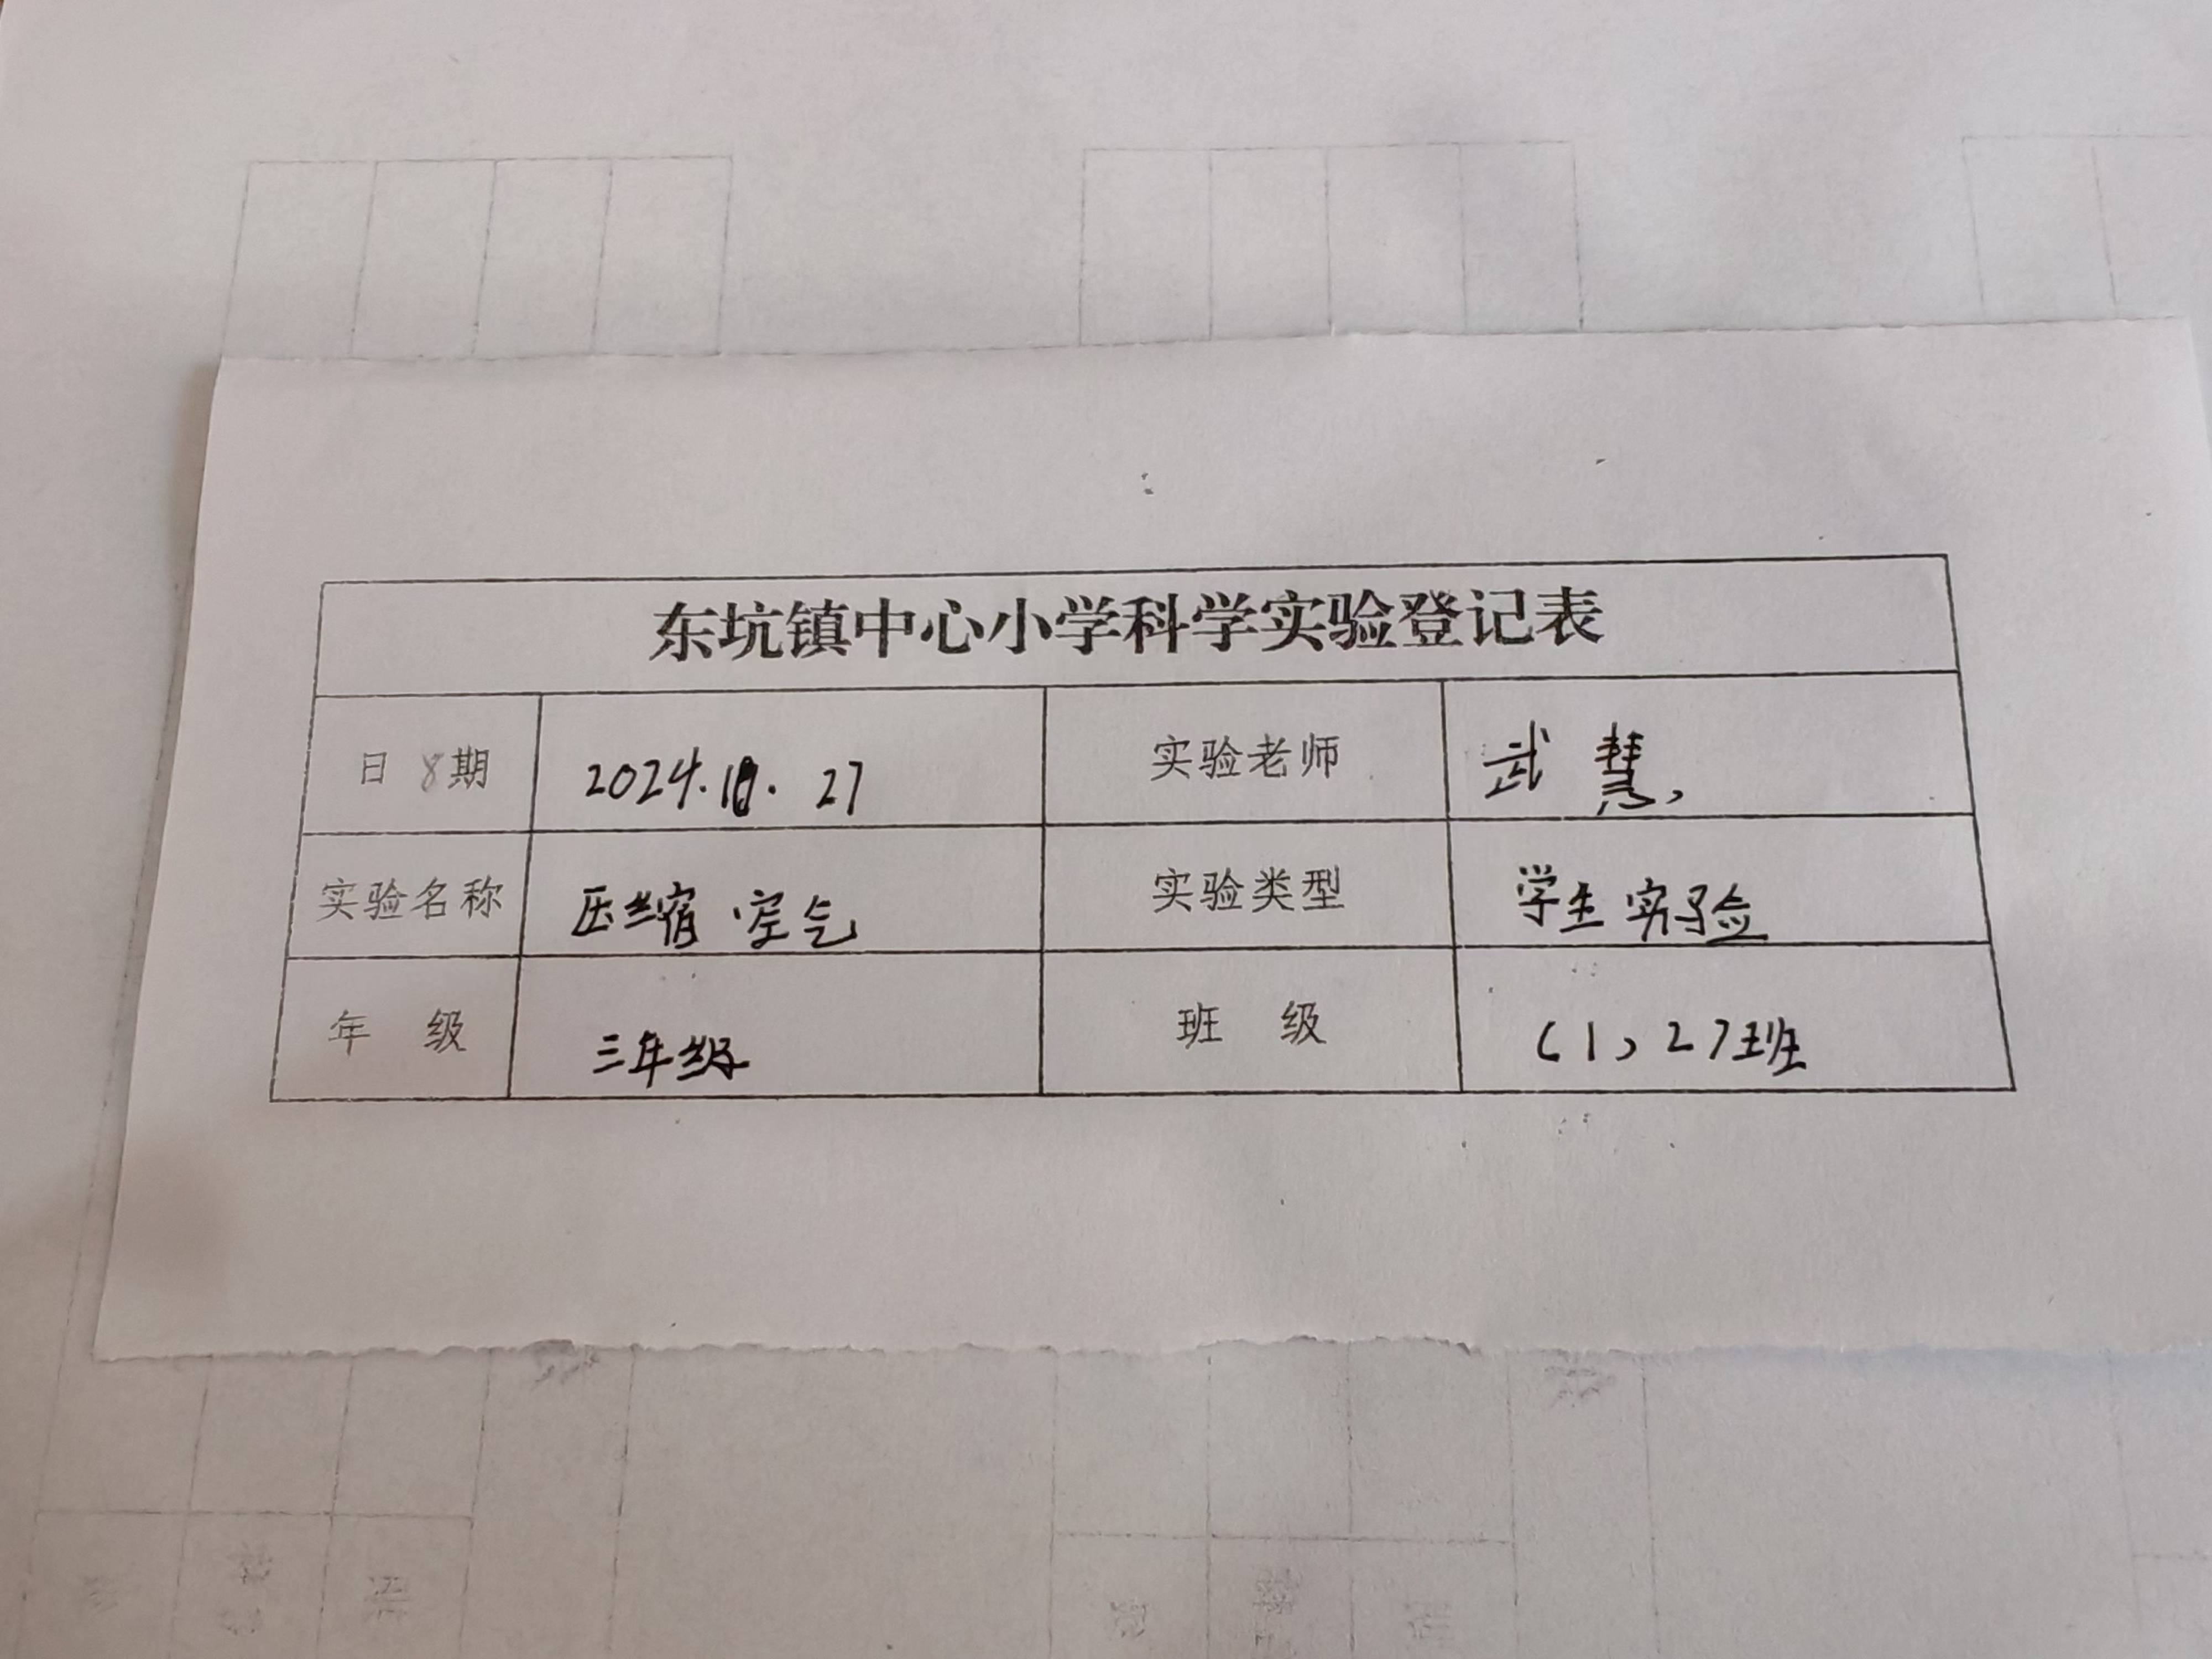 东坑镇中心小学科学实验登记表
日 8期 2024.10.27 实验老师 武慧
实验名称 压缩空气 实验类型 学生实验
年 级 三年级 班 级 (1,2)班